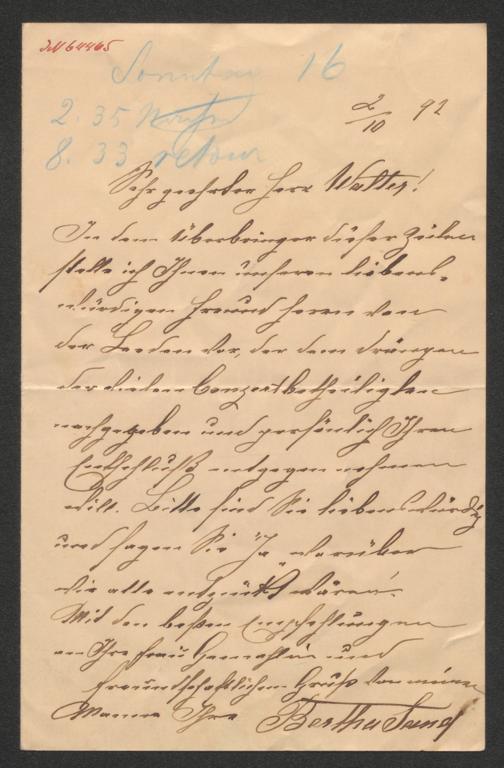 Sonntag 16
2. 35
8. 33 retour
2/10 92
Sehr geehrter Herr Walter!
In dem Überbringer dieser Zeilen
stelle ich Ihnen unseren liebens-
würdigen Freund Herrn van
der Leeden vor, der dem Drängen
der vielen Conzertbetheiligten
nachgegeben und persönlich Ihren
Entschluß entgegen nehmen
will. Bitte sind Sie liebenswürdig
und sagen Sie "Ja" worüber
wir alle entzückt wären!
Mit den besten Empfehlungen
an Ihre Frau Gemahlin und
freundschaftlichem Gruß von meinem
Manne Ihre Bertha